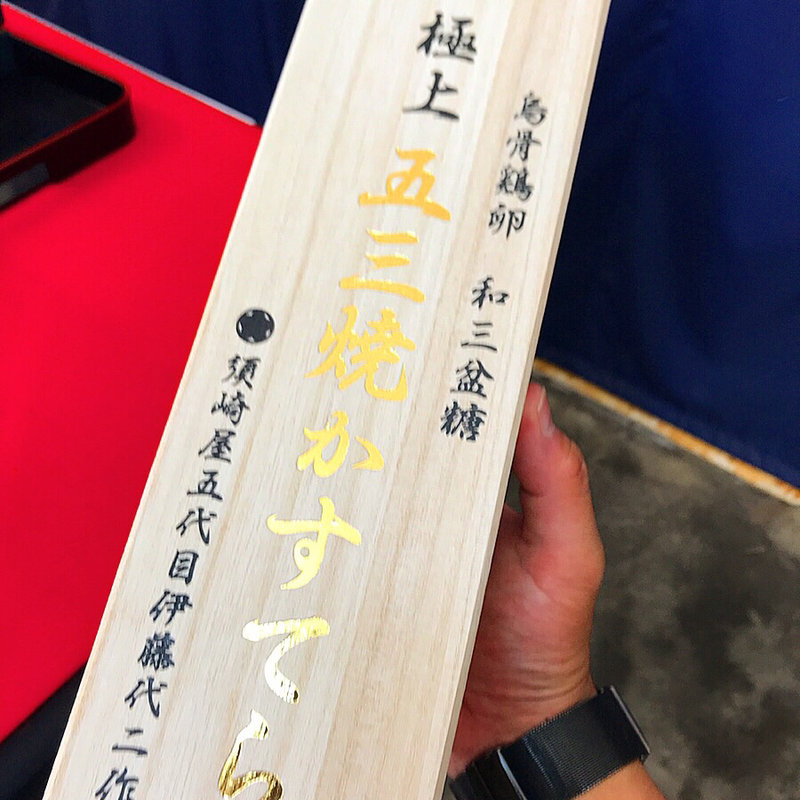 烏骨鶏卵 和三盆糖
極上 五三焼かすてら
須崎屋五代目伊藤代二作